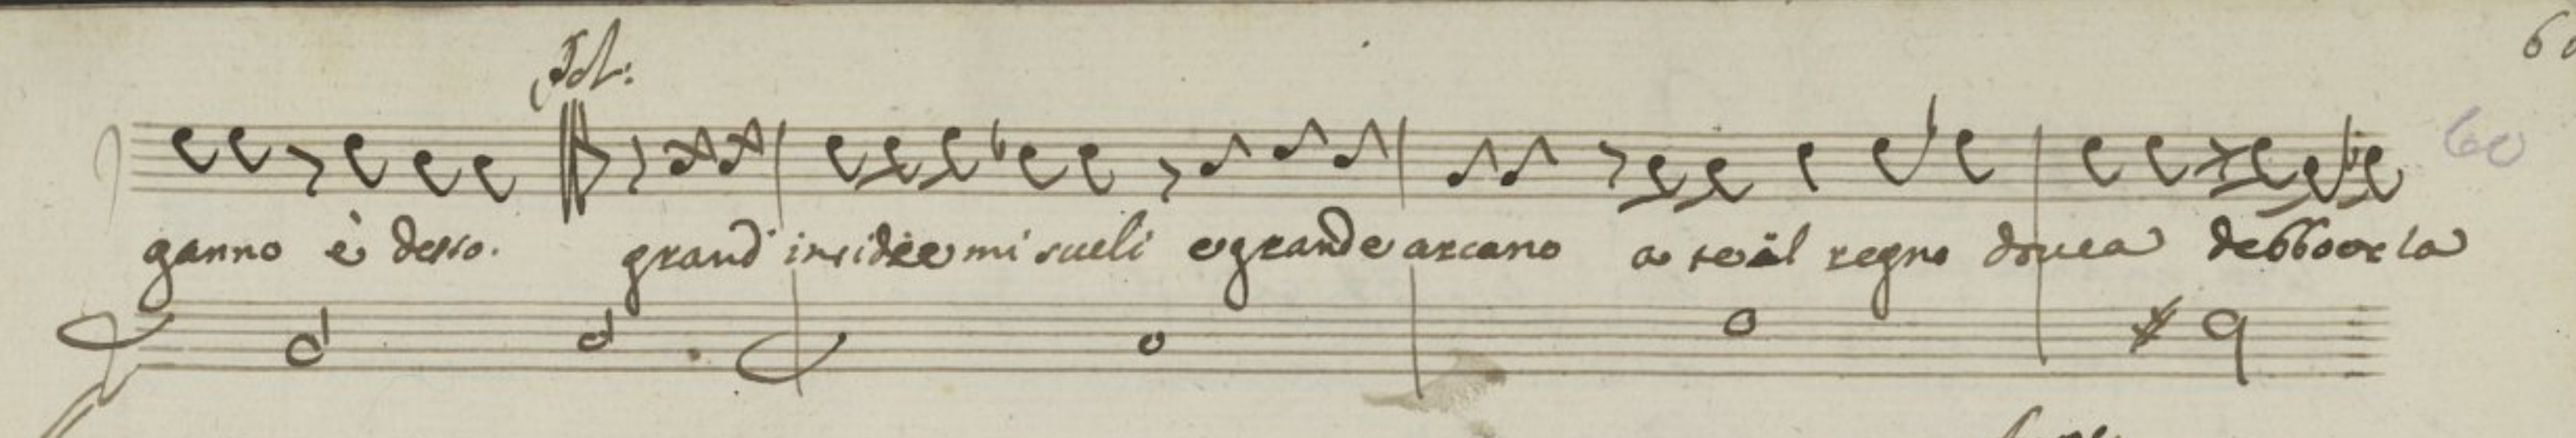 Tol:
60
ganno è desso. grand' insidie mi sueli e grande arcano a te il regno douea debbo or la